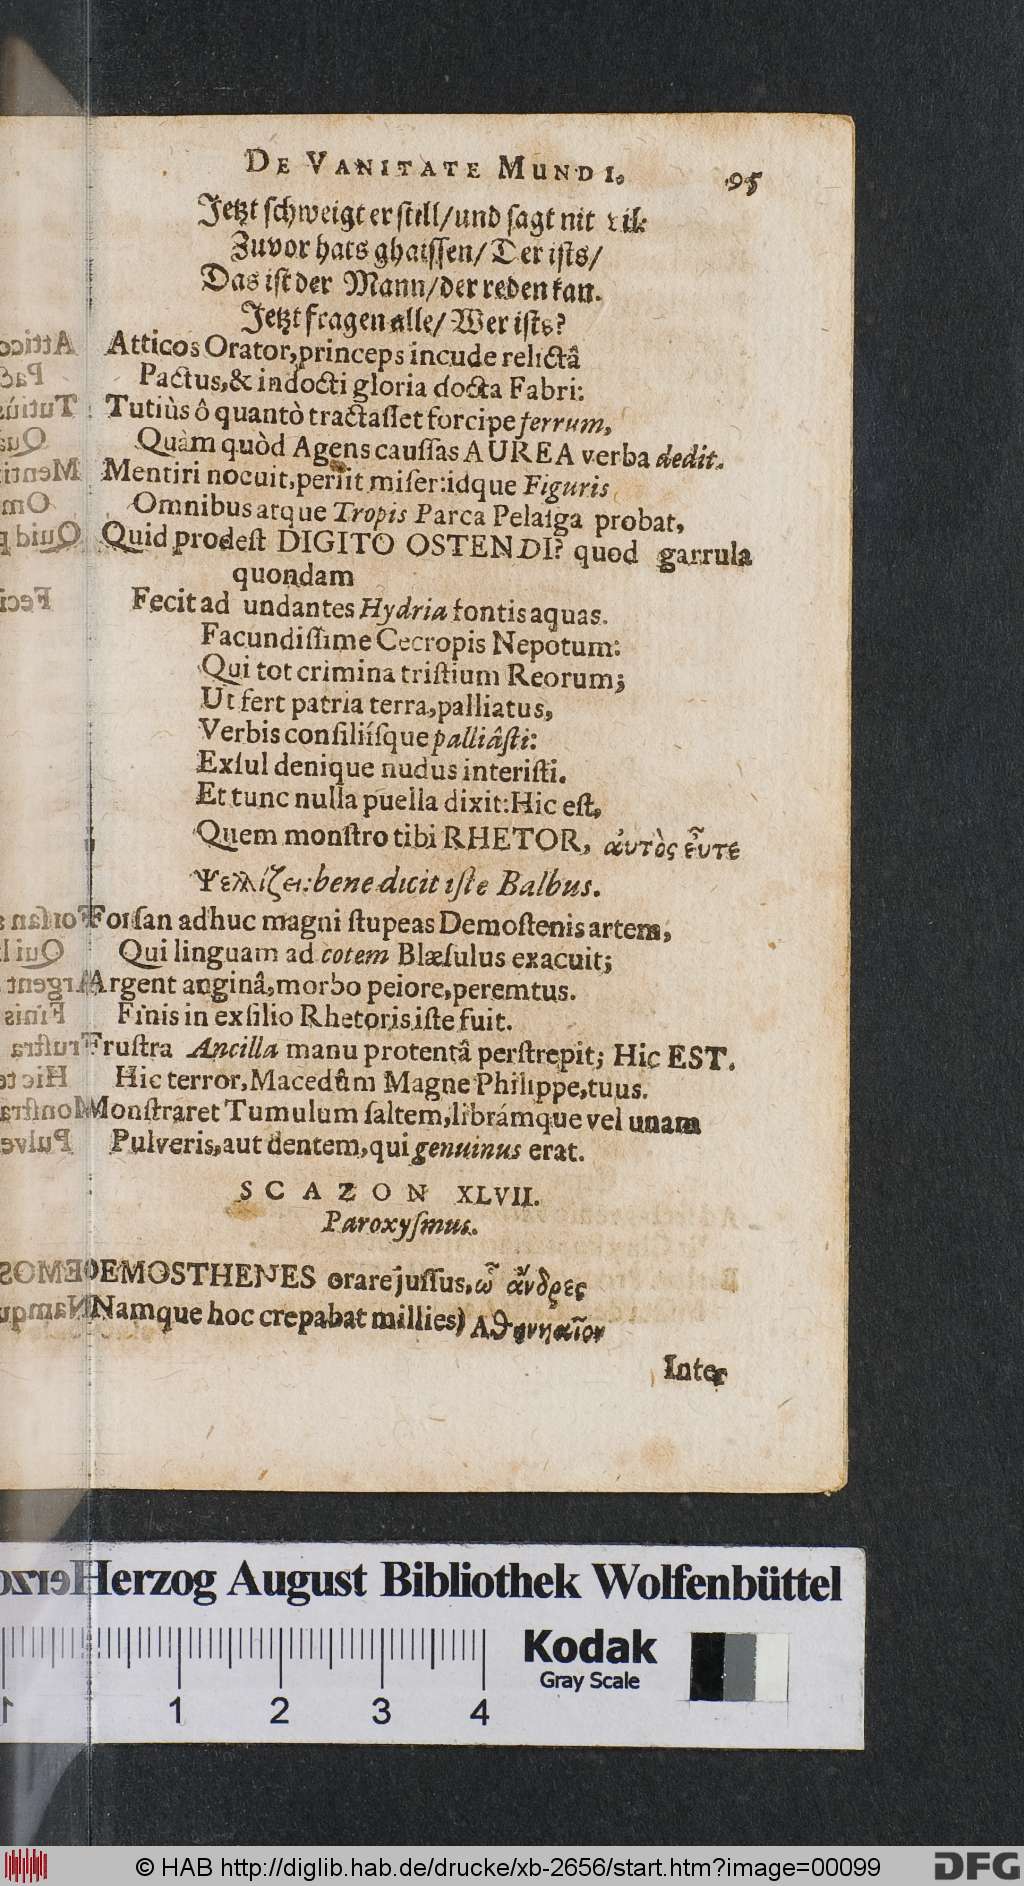 DE VANITATE MUNDI. 95
Jetzt schweigt er still/und sagt nit vil:
Zuvor hats ghaissen/Der ists/
Das ist der Mann/der reden kan.
Jetzt fragen alle/Wer ists?
Atticos Orator,princeps incude relictâ
Pactus,& indocti gloria docta Fabri:
Tutiùs ô quantò tractasset forcipe ferrum,
Quàm quòd Agens caussas AUREA verba dedit.
Mentiri nocuit,periit miser:idque Figuris
Omnibus atque Tropis Parca Pelasga probat,
Quid prodest DIGITO OSTENDI? quod garrula
quondam
Fecit ad undantes Hydria fontis aquas.
Facundissime Cecropis Nepotum:
Qui tot crimina tristium Reorum;
Ut fert patria terra,palliatus,
Verbis consiliísque palliâsti:
Exsul denique nudus interisti.
Et tunc nulla puella dixit:Hic est,
Quem monstro tibi RHETOR, ἀυτὸς εὖτε
Ψελλίζει:bene dicit iste Balbus.
Forsan adhuc magni stupeas Demostenis artem,
Qui linguam ad cotem Blæsulus exacuit;
Argent anginâ,morbo peiore,peremtus.
Finis in exsilio Rhetoris iste fuit.
Frustra Ancilla manu protentâ perstrepit; Hic EST.
Hic terror,Macedûm Magne Philippe,tuus.
Monstraret Tumulum saltem,librámque vel unam
Pulveris,aut dentem,qui genuinus erat.
SCAZON XLVII.
Paroxysmus.
DEMOSTHENES orare jussus,ὦ ἄνδρες
Namque hoc crepabat millies) Αθηνηαῖοι
Inter
Herzog August Bibliothek Wolfenbüttel
1 1 2 3 4
Kodak
Gray Scale
© HAB http://diglib.hab.de/drucke/xb-2656/start.htm?image=00099
DFG